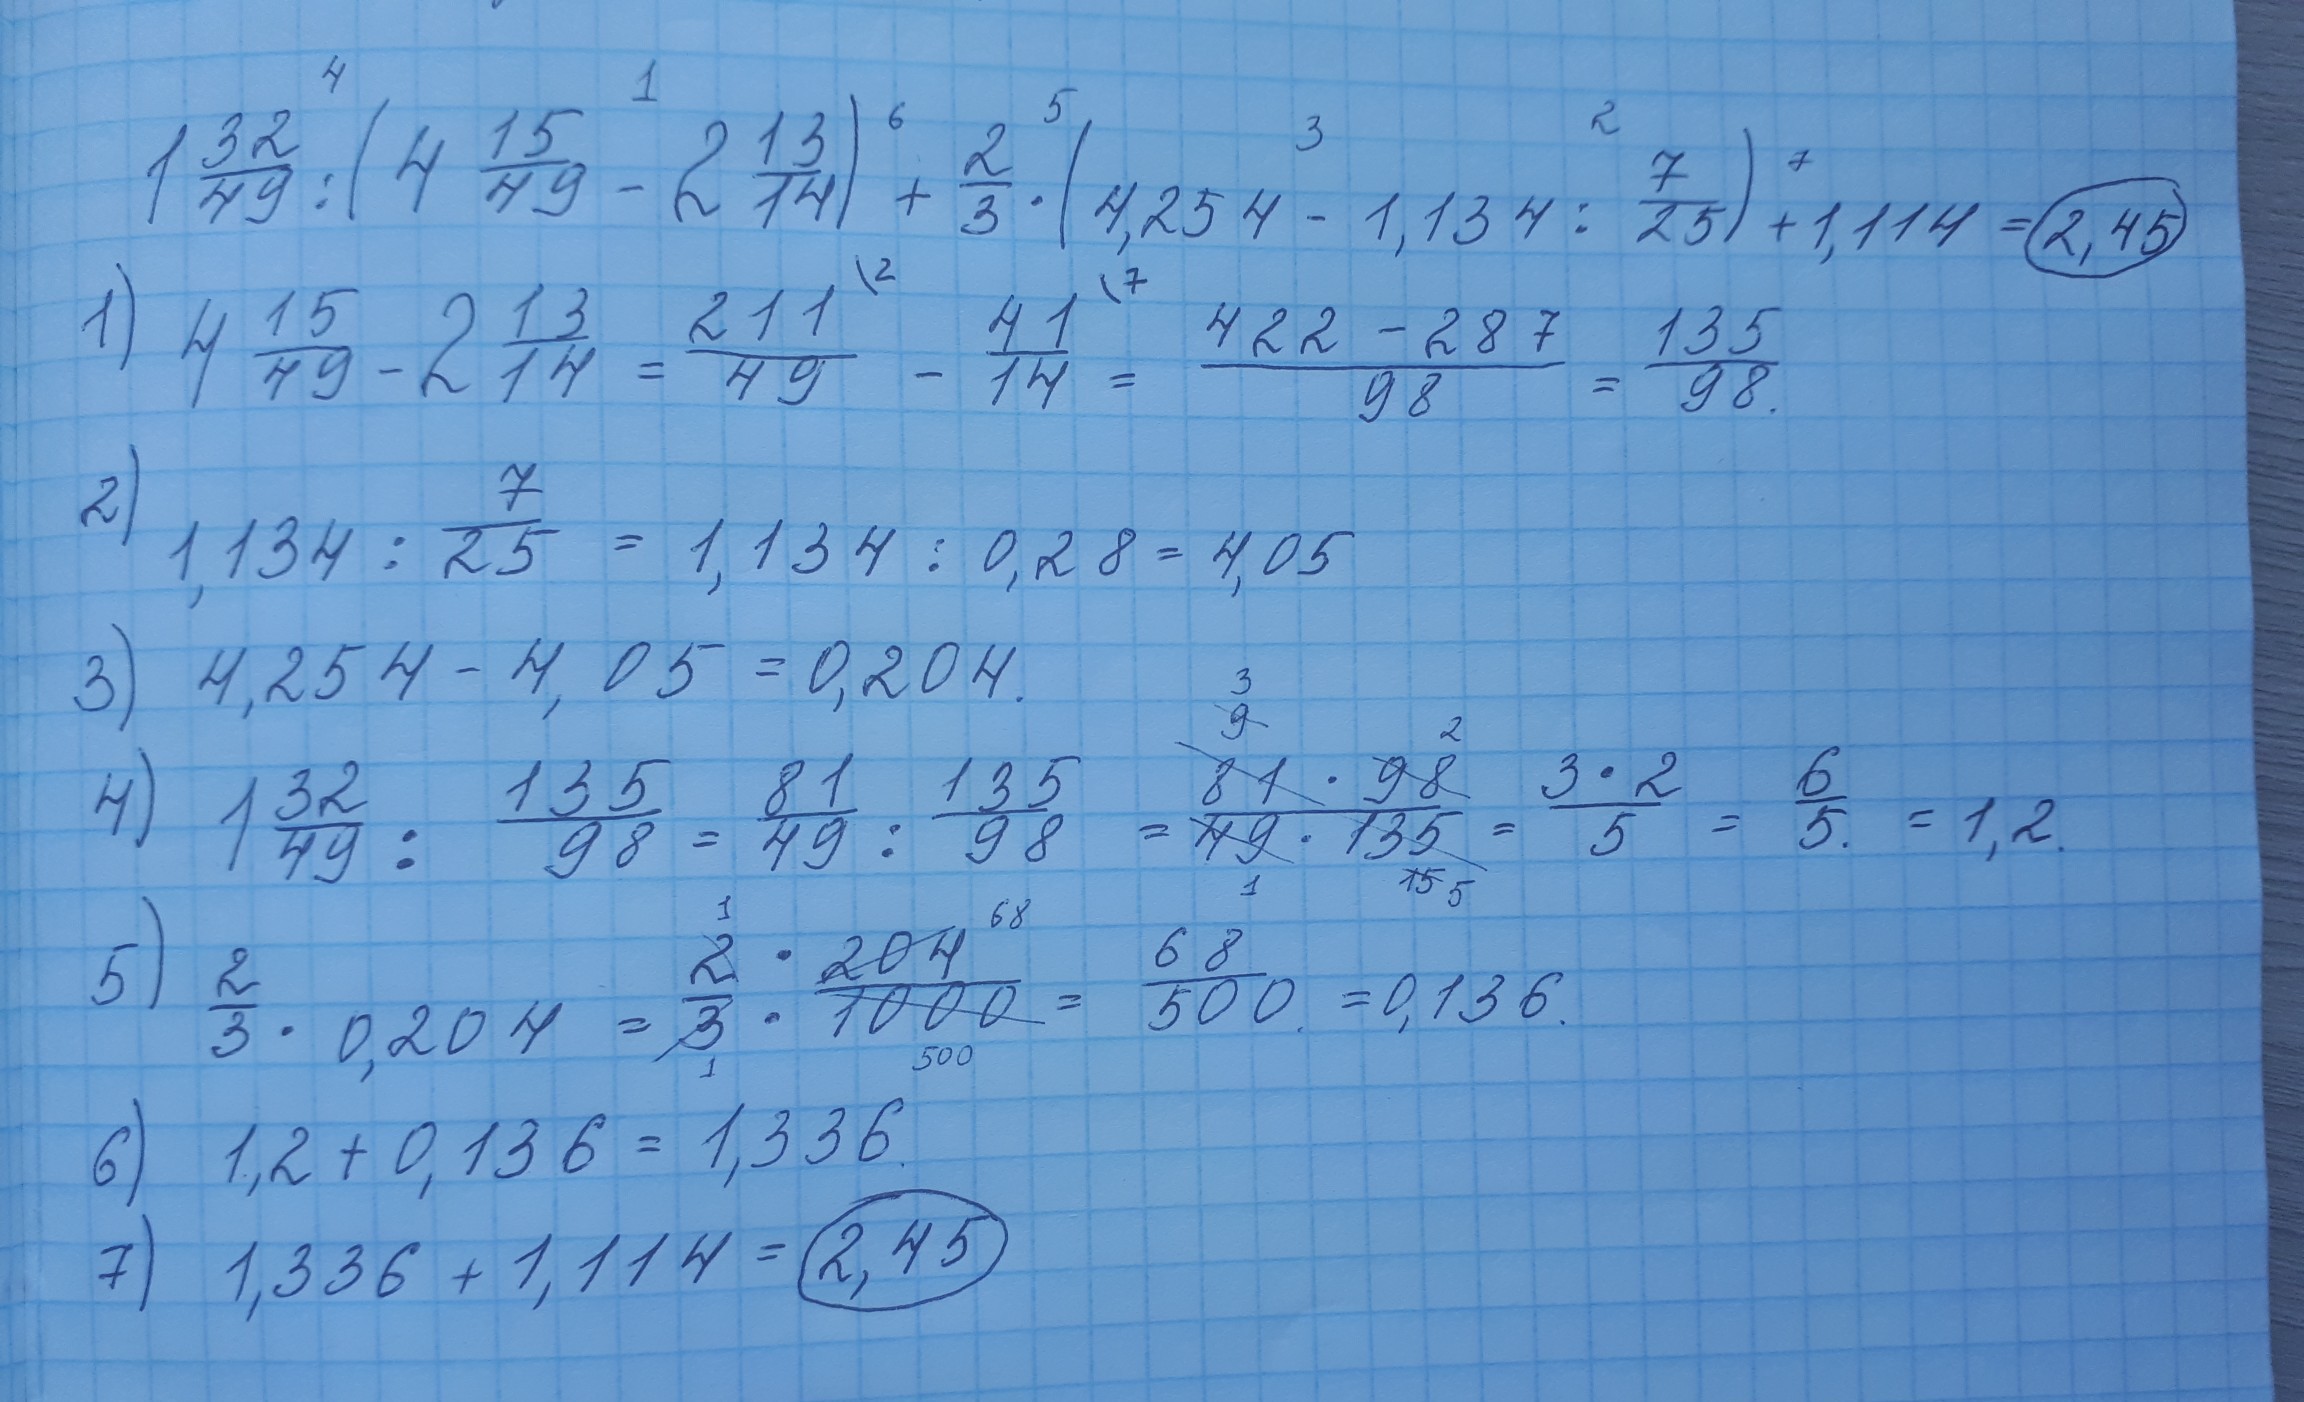 1 32/49 : (4 15/49 - 2 13/14) + 2/3 · (4,254 - 1,134 : 7/25) + 1,114 = 2,45
1) 4 15/49 - 2 13/14 = 211/49 \2 - 41/14 \7 = (422 - 287)/98 = 135/98.
2) 1,134 : 7/25 = 1,134 : 0,28 = 4,05
3) 4,254 - 4,05 = 0,204.
4) 1 32/49 : 135/98 = 81/49 : 135/98 = (81 · 98)/(49 · 135) = (3 · 2)/5 = 6/5. = 1,2.
5) 2/3 · 0,204 = (2 · 204)/(3 · 1000) = 68/500. = 0,136.
6) 1,2 + 0,136 = 1,336.
7) 1,336 + 1,114 = 2,45